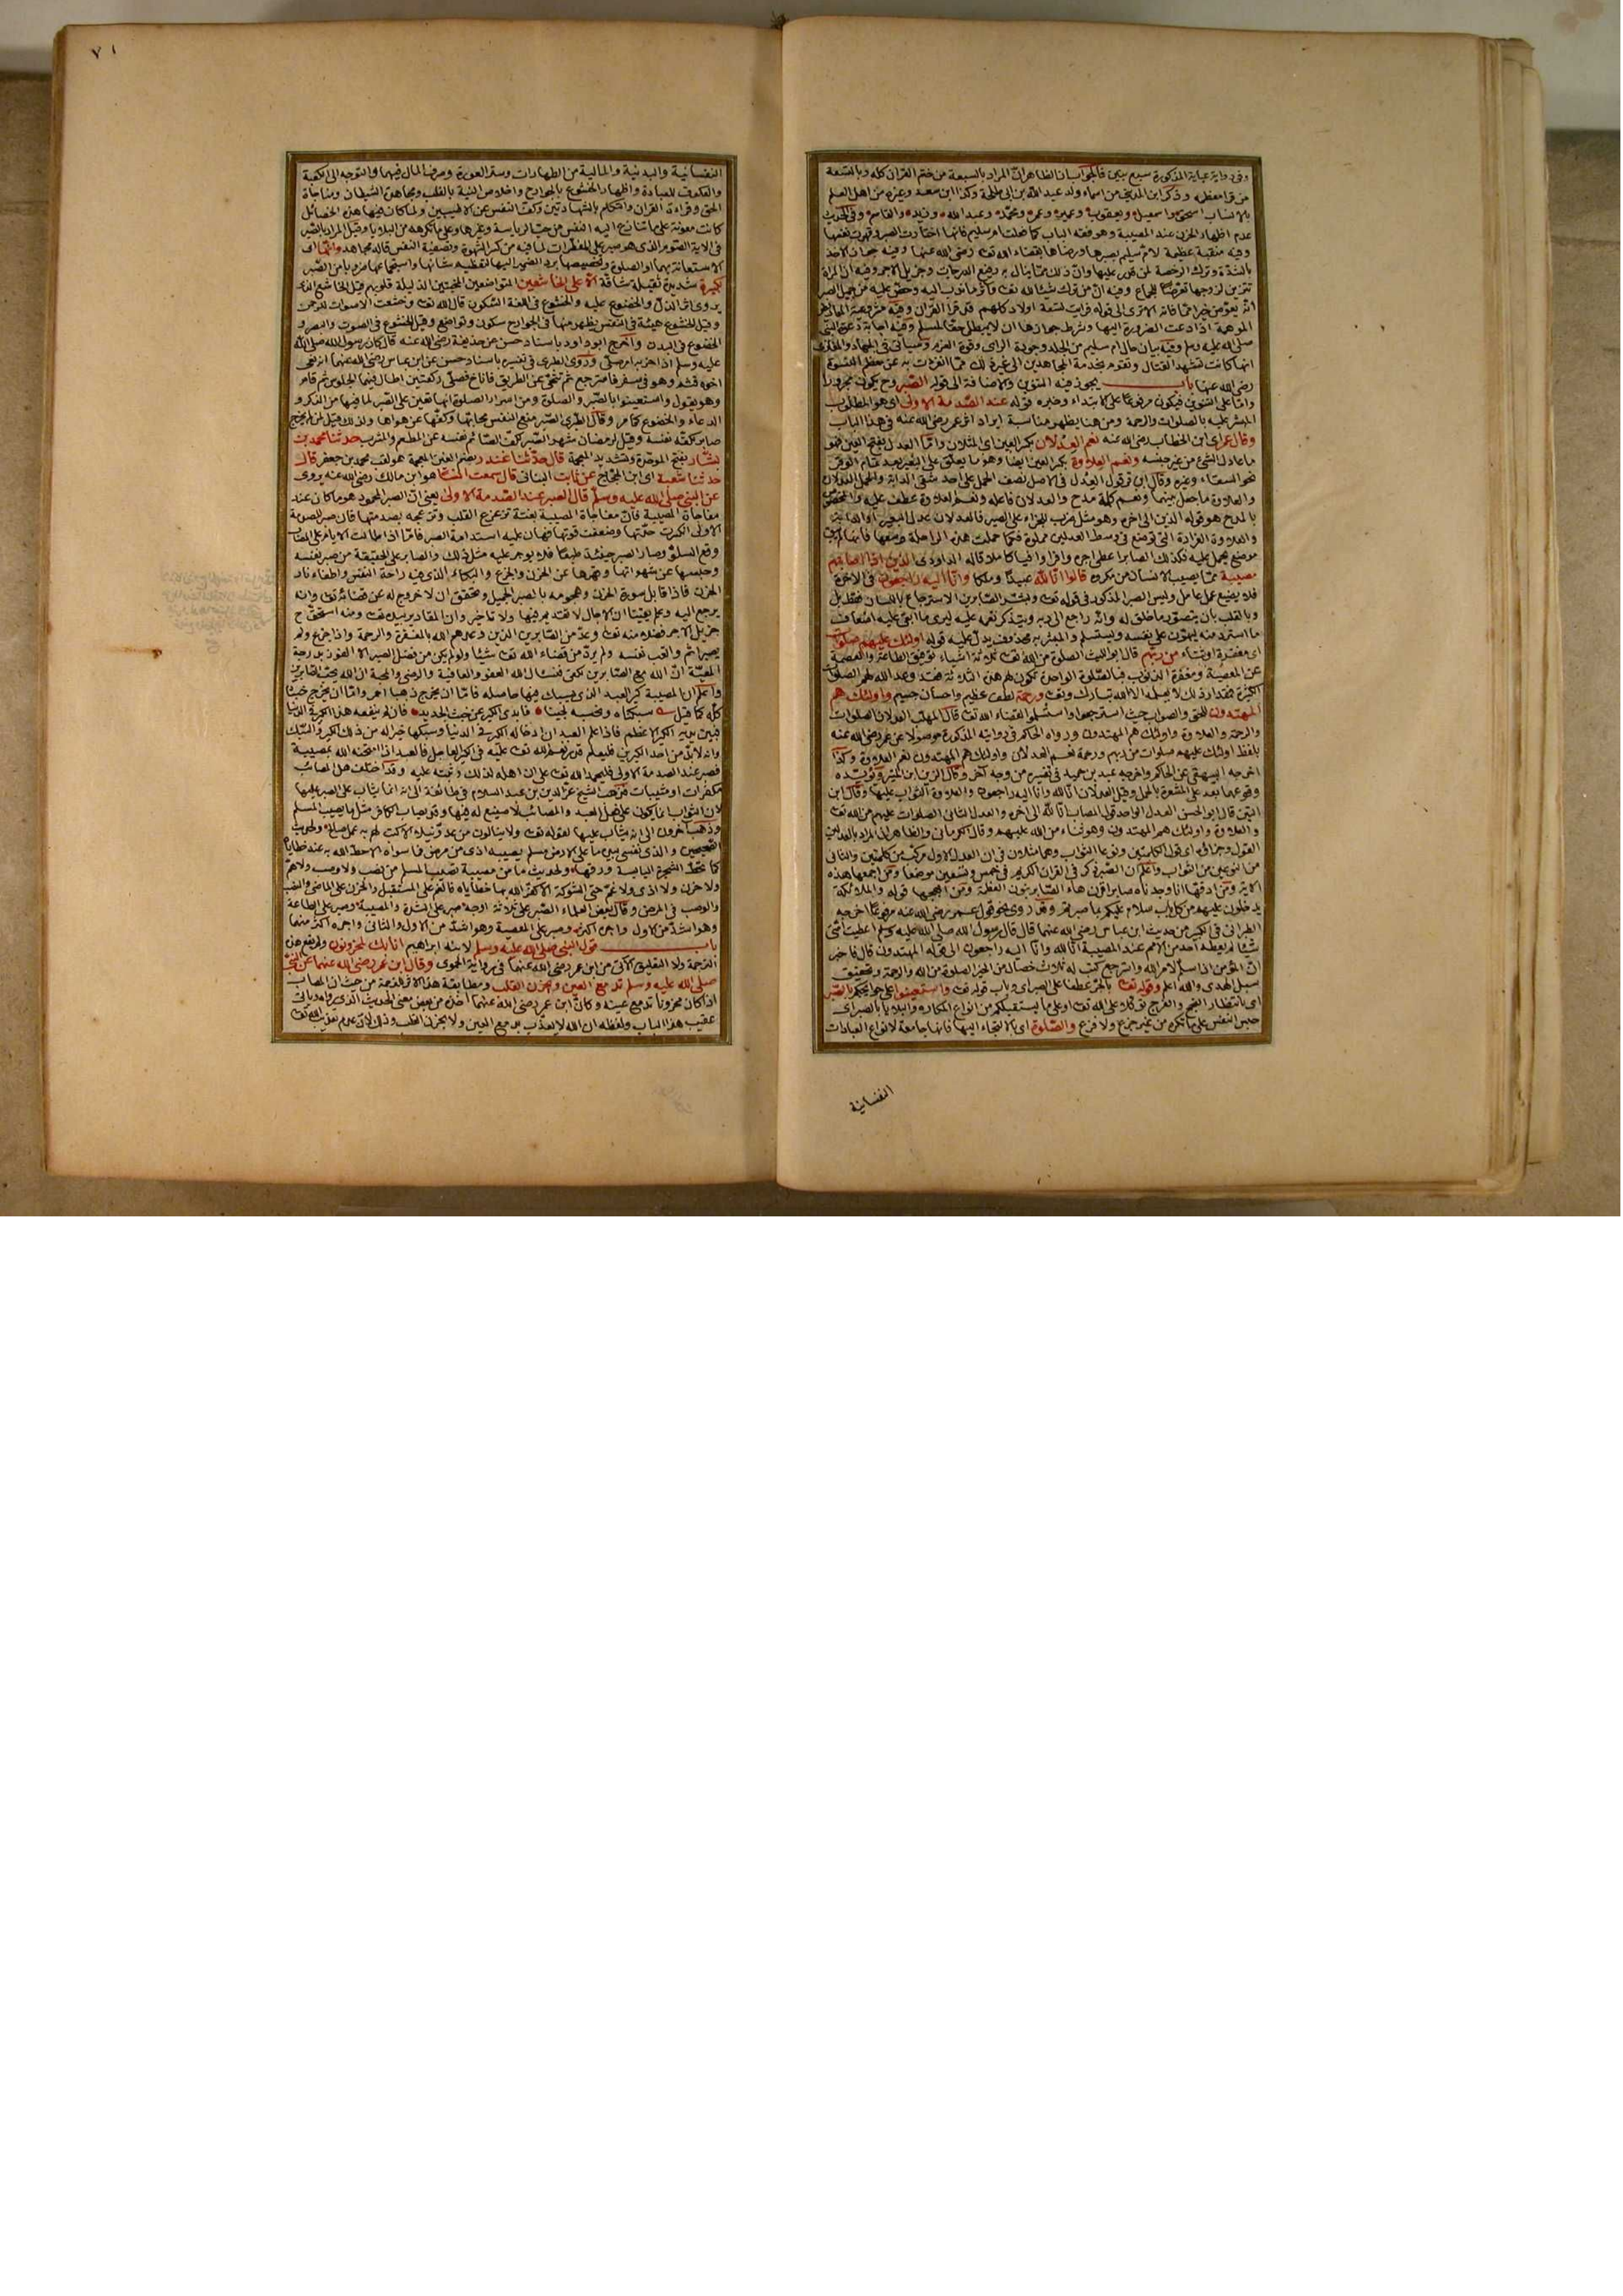 وفى رواية عباية المذكورة سبع بنين فالجواب ان الظاهر ان المراد بالسبعة من ختم القران كله وبالتسعة
من قرا معظمه وذكر ابن المدينى من اسماء ولد عبد الله بن ابى طلحة وكذا ابن سعد وغيره من اهل العلم
بالانساب اسحق واسمعيل ويعقوب وعمير وعمر ومحمد وعبد الله وزيد والقاسم وفى الحديث
عدم اظهار الحزن عند المصيبة وهو فقه الباب كما فعلت ام سليم فانها اختارت الصبر وقهرت نفسها
وفيه منقبة عظيمة لام سليم بصبرها ورضاها بقضاء الله تعـ رضى الله عنها وفيه جواز الاخذ
بالشدة وترك الرخصة لمن قدر عليها وان ذلك مما ينال به رفيع الدرجات وجزيل الاجر وفيه ان المراة
تتزين لزوجها تعرضا للجماع وفيه ان من ترك شيئا لله تعـ
صلى الله عليه وسلم وفيه بيان حال ام سليم من الجلد وجودة الراى وقوة العزم وسياتى فى الجهاد والمغازى
انها كانت تشهد القتال وتقوم بخدمة المجاهدين الى غير ذلك مما انفردت به عن معظم النسوة
رضى الله عنها باب يجوز فيه التنوين والاضافة الى قوله الصبر
واما على التنوين فيكون مرفوعا على الابتداء وخبره قوله عند الصدمة الاولى اى هو المطلوب
المبشر عليه بالصلوات والرحمة ومن هنا يظهر مناسبة ايراد اثر عمر رضى الله عنه فى هذا الباب
وقال عمر اى ابن الخطاب رضى الله عنه نعم العدلان بكسر العين اى المثلان واما العدل بفتح العين فهو
ما عادل الشئ من غير جنسه ونعم العلاوة بكسر العين ايضا وهو ما يعلق على البعير بعد تمام الوقر
نحو السقاء وغيره وقال ابن قرقول العدل فى الاصل نصف الحمل على احد شقى الدابة والحمل العدلان
والعلاوة ما جعل بينهما ونعم كلمة مدح والعدلان فاعله ونعم العلاوة عطف عليه والمخصوص
بالمدح هو قوله الذين الى اخره وهو مثل ضرب للجزاء على الصبر فالعدلان عدلا البعير
مصيبة مما يصيب الانسان من مكروه قالوا انا لله عبيدا وملكا وانا اليه راجعون فى الاخرة
فلا يضيع عمل عامل وليس الصبر المذكور فى قوله تعـ وبشر الصابرين الاسترجاع باللسان فقط بل
وبالقلب بان يتصور ما خلق له وانه راجع الى ربه ويتذكر نعمه عليه ليرى ما ابقى عليه اضعاف
ما استرد منه ليهون على نفسه ويستسلم والمبشر به محذوف يدل عليه قوله اولئك عليهم صلوات
اى مغفرة او ثناء من ربهم قال ابو الليث الصلوة من الله تعـ ثلاثة اشياء توفيق الطاعة والعصمة
عن المعصية ومغفرة الذنوب فبالصلوة الواحدة تكون لهم هذه الثلاثة فقد وعد الله لهم الصلوات
الكثيرة فمقدار ذلك لا يعلمه الا الله تبارك وتعـ ورحمة لطف عظيم واحسان جسيم واولئك هم
المهتدون للحق والصواب حيث استرجعوا واستسلموا لقضاء الله تعـ قال المهلب العدلان الصلوات
والرحمة والعلاوة واولئك هم المهتدون ورواه الحاكم فى روايته المذكورة موصولا عن عمر رضى الله عنه
بلفظ اولئك عليهم صلوات من ربهم ورحمة نعم العدلان واولئك هم المهتدون نعم العلاوة وكذا
اخرجه البيهقى عن الحاكم واخرجه عبد بن حميد فى تفسيره من وجه آخر وقال الزين ابن المنير ويؤيده
وقوعهما بعد على المشعرة بالحمل وقيل العدلان انا لله وانا اليه راجعون والعلاوة الثواب عليها وقال ابن
التين قال ابو الحسن العدل الواحد قول المصاب انا لله الى اخره والعدل الثانى الصلوات عليهم من الله تعـ
والعلاوة واولئك هم المهتدون وهو ثناء من الله عليهم وقال الكرمانى والظاهر ان المراد بالعدلين
القول وجزاؤه اى قول الكلمتين ونوعا الثواب وهما متلازمان فى ان العدل الاول مركب من كلمتين والثانى
من النوعين من الثواب واعلم ان الصبر ذكر فى القران الكريم فى خمس وتسعين موضعا ومن اجمعها هذه
الاية ومن ادقها انا وجدناه صابرا
يدخلون عليهم من كل باب سلام عليكم بما صبرتم وقد روى نحو قول عمر رضى الله عنه مرفوعا اخرجه
الطبرانى فى الكبير من حديث ابن عباس رضى الله عنهما قال قال رسول الله صلى الله عليه وسلم اعطيت امتى
شيئا لم يعطه احد من الامم عند المصيبة انا لله وانا اليه راجعون الى قوله المهتدون قال فاخبر
ان المؤمن اذا سلم لامر الله واسترجع كتب له ثلاث خصال من الخير الصلوة من الله والرحمة وتحقيق
سبل الهدى والله اعلم وقوله تعـ بالجر عطفا على الصبر اى وباب قوله تعـ واستعينوا على حوائجكم بالصبر
اى بانتظار النجح والفرج توكلا على الله تعـ او على ما يستقبلكم من انواع المكاره والبلايا بالصبر اى
حبس النفس على ما تكره من غير جزع ولا فزع والصلوة اى بالالتجاء اليها فانها جامعة لانواع العبادات
النفسانية
٧١
النفسانية والبدنية والمالية من الطهارات وستر العورة وصرف المال فيهما والتوجه الى الكعبة
والعكوف للعبادة واظهار الخشوع بالجوارح واخلاص النية بالقلب ومجاهدة الشيطان ومناجاة
الحق وقراءة القران والتكلم بالشهادتين وكف النفس عن الاطيبين ولما كان فيها هذه الخصائل
كانت معونة على ما تنازع اليه النفس من حب الرياسة وغيرها وعلى ما تكرهه من البلايا وقيل المراد بالصبر
فى الاية الصوم الذى هو صبر على المفطرات لما فيه من كسر الشهوة وتصفية النفس قاله مجاهد وانها اى
الاستعانة بهما او الصلوة وتخصيصها برد الضمير اليها لتعظيم شانها واستجماعها ضروبا من الصبر
لكبيرة شديدة ثقيلة شاقة الا على الخاشعين المتواضعين المخبتين الذليلة قلوبهم قيل الخاشع الذى
يرى اثر الذل والخضوع عليه والخشوع فى اللغة السكون قال الله تعـ وخشعت الاصوات للرحمن
وقيل الخشوع هيئة فى النفس يظهر منها فى الجوارح سكون وتواضع وقيل الخشوع فى الصوت والبصر و
الخضوع فى البدن واخرج ابو داود باسناد حسن من حذيفة رضى الله عنه قال كان رسول الله صلى الله
عليه وسلم اذا حزبه امر صلى وروى الطبرى فى تفسيره باسناد حسن عن ابن عباس رضى الله عنهما انه نعى
اخوه قثم وهو فى سفر فاسترجع ثم تنحى عن الطريق فاناخ فصلى ركعتين اطال فيهما الجلوس ثم قام
وهو يقول واستعينوا بالصبر والصلوة ومن اسرار الصلوة انها تعين على الصبر لما فيها من الذكر و
الدعاء والخضوع كما مر وقال الطبرى الصبر منع النفس محابها وكفها عن هواها ولذلك قيل لمن لم يجزع
صابر لكفه نفسه وقيل لرمضان شهر الصبر لكف الصائم نفسه عن المطعم والمشرب حدثنا محمد بن
بشار بفتح الموحدة وتشديد المعجمة قال حدثنا غندر بضم الغين المعجمة هو لقب محمد بن جعفر قال
حدثنا شعبة اى ابن الحجاج عن ثابت البنانى قال سمعت انسا هو ابن مالك رضى الله عنه يروى
عن النبى صلى الله عليه وسلم قال الصبر عند الصدمة الاولى يعنى ان الصبر المحمود هو ما كان عند
مفاجاة المصيبة فان مفاجاة المصيبة بغتة تزعزع القلب وتزعجه بصدمتها فان صبر للصدمة
الاولى انكسرت حدتها وضعفت قوتها فهان عليه استدامة الصبر فاما اذا طالت الايام على المصاب
وقع السلو وصار الصبر حينئذ طبعا فلا يوجر عليه مثل ذلك والصابر على الحقيقة من صبر نفسه
وحبسها عن شهواتها وقهرها عن الحزن والجزع والبكاء الذى فيه راحة النفس واطفاء نار
الحزن فاذا قابل سورة الحزن وهجومه بالصبر الجميل وتحقق ان لا خروج له عن قضائه تعـ وانه
يرجع اليه وعلم يقينا ان الاجال لا تقديم فيها ولا تاخير وان المقادير بيده تعـ ومنه استحق ح
جزيل الاجر فضلا منه تعـ وعد من الصابرين الذين وعدهم الله بالمغفرة والرحمة واذا جزع ولم
يصبر اثم واتعب نفسه ولم يرد من قضاء الله تعـ شيئا ولو لم يكن من فضل الصبر الا الفوز بدرجة
المعية ان الله مع الصابرين لكفى فنسال الله العفو والعافية والرضى والمحبة ان الله يحب الصابرين
واعلم ان المصيبة كير العبد الذى يسبك فيها حاصله فاما ان يخرج ذهبا احمر واما ان يخرج خبثا
كله كما قيل سبكناه ونحسبه لجينا فابدى الكير عن خبث الحديد فان لم ينفعه هذا الكير فى الدنيا
فبين يديه الكير الاعظم فاذا علم العبد ان ادخاله الكير فى الدنيا وسبكها خير له من ذلك الكير والسبك
وانه لابد من احد الكيرين فليعلم قدر نعمة الله تعـ عليه فى الكير العاجل فالعبد اذا امتحنه الله بمصيبة
فصبر عند الصدمة الاولى فليحمد الله تعـ على ان اهله لذلك وثبته عليه وقد اختلف هل المصائب
مكفرات او مثيبات فذهب الشيخ عز الدين بن عبد السلام فى طائفة الى انه انما يثاب على الصبر عليها
لان الثواب انما يكون على فعل العبد والمصائب لا صنع له فيها وقد يصاب الكافر مثل ما يصيب المسلم
وذهب اخرون الى انه يثاب عليها لقوله تعـ ولا ينالون من عدو نيلا الا كتب لهم به عمل صالح ولحديث
الصحيحين والذى نفسى بيده ما على الارض مسلم يصيبه اذى من مرض فما سواه الا حط الله به عنه خطاياه
كما تحط الشجرة اليابسة ورقها ولحديث ما من مصيبة تصيب المسلم من نصب ولا وصب ولا هم
ولا حزن ولا اذى ولا غم حتى الشوكة الا كفر الله بها خطاياه فالهم على المستقبل والحزن على الماضى والنصب
والوصب فى المرض وقال بعض العلماء الصبر على ثلاثة اوجه صبر على الشدة والمصيبة وصبر على الطاعة
وهو اشد من الاول واجره اكثر وصبر على المعصية وهو اشد من الاول والثانى واجره اكثر منهما
باب قول النبى صلى الله عليه وسلم لابنه ابراهيم انا بك لمحزونون ولم يقع هذه
الترجمة ولا التعليق الاتى من ابن عمر رضى الله عنهما فى رواية الحموى وقال ابن عمر رضى الله عنهما عن النبى
صلى الله عليه وسلم تدمع العين ويحزن القلب ومطابقة هذا الاثر للترجمة من حيث ان المصاب
اذا كان محزونا تدمع عينه وكان ابن عمر رضى الله عنهما اخذه من بعض معنى الحديث الذى رواه وياتى
عقيب هذا الباب ولفظه ان الله لا يعذب بدمع العين ولا بحزن القلب وذلك لان عدم تعذيب الله تعـ